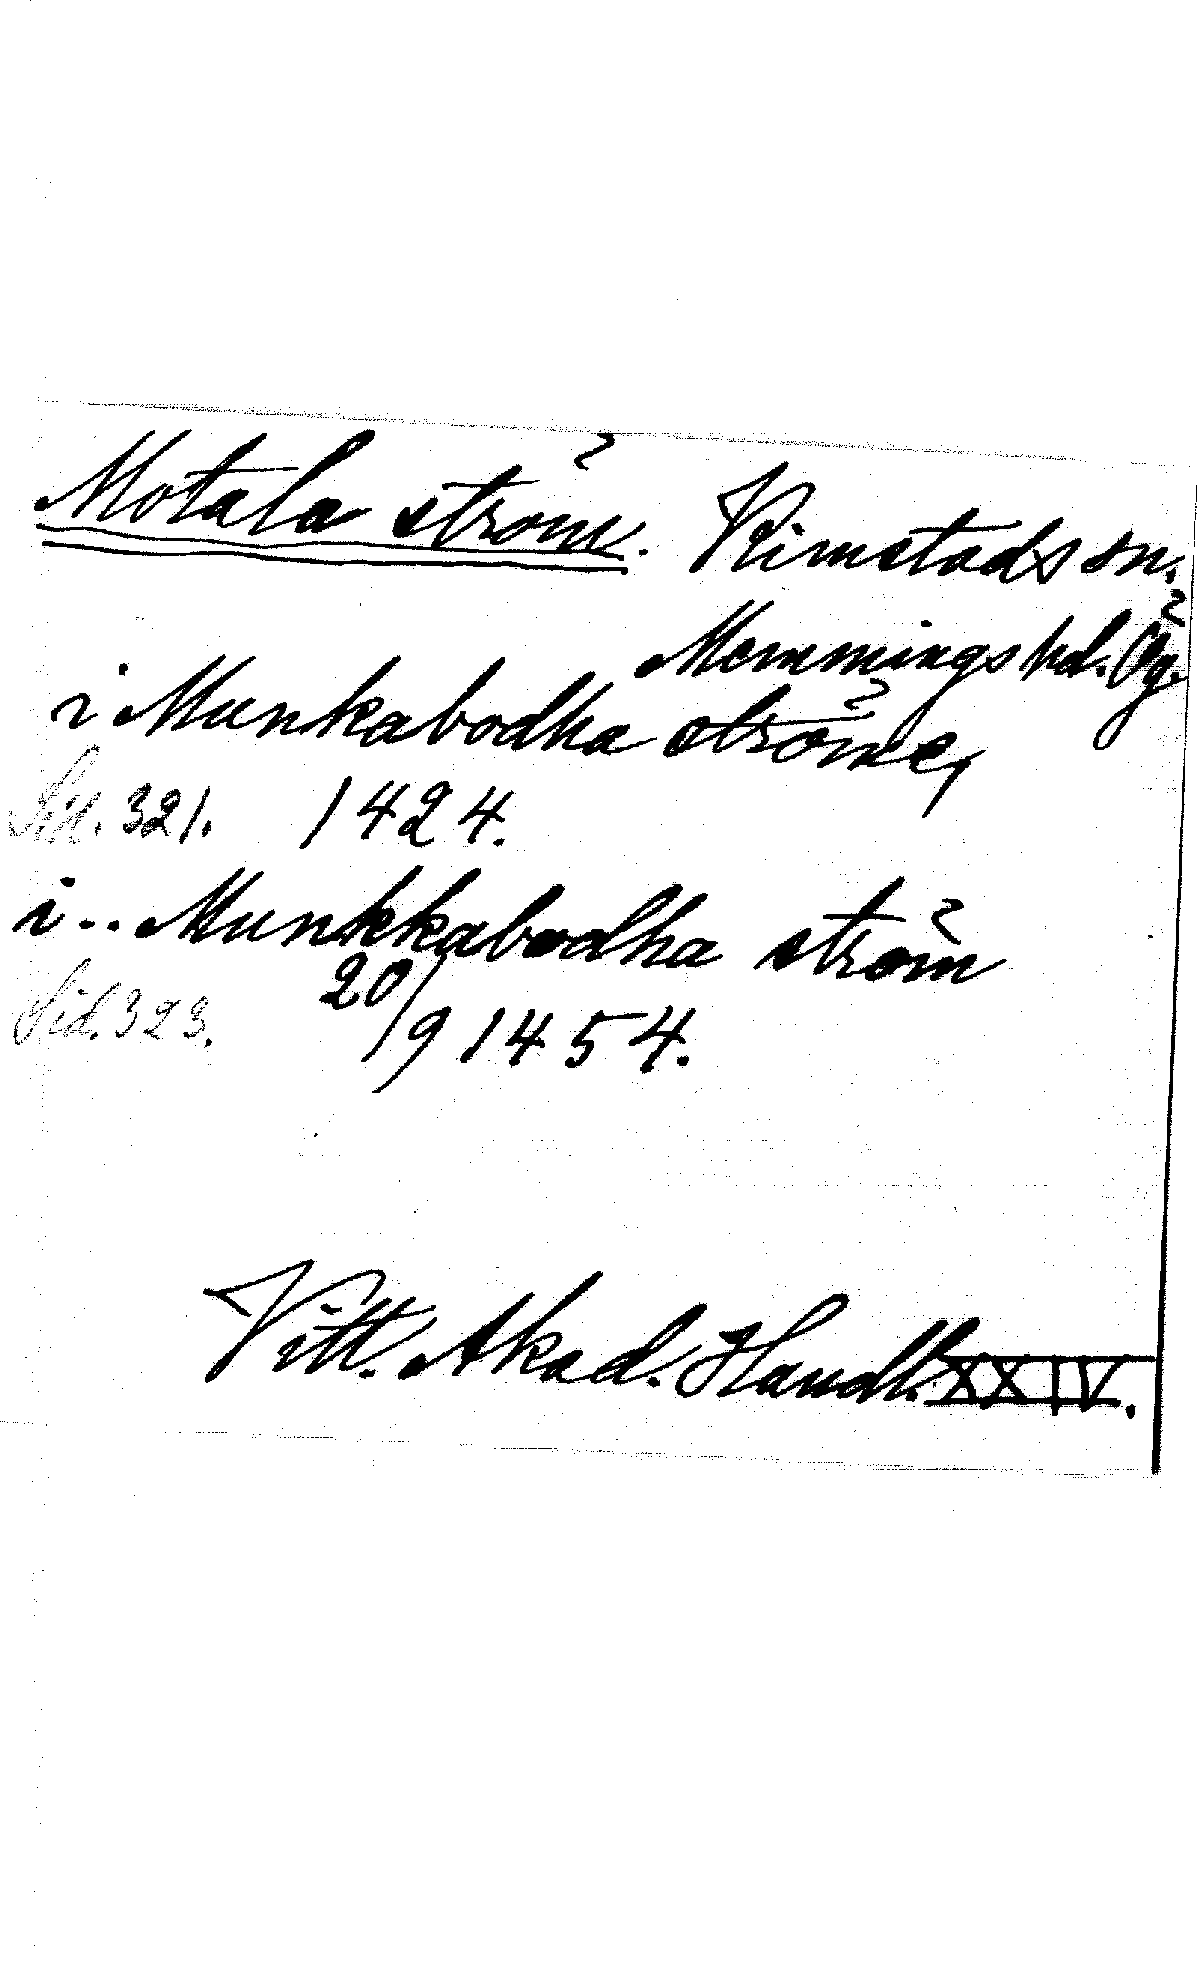 Motala ström. Kimstads sn.
Memmings hd. Ög.
i Munkabodha ströme,
Sid. 321. 1424.
i.. Munkkabodha ström
Sid. 323. 20/9 1454.
Vitt. Akad. Handl. XXIV.